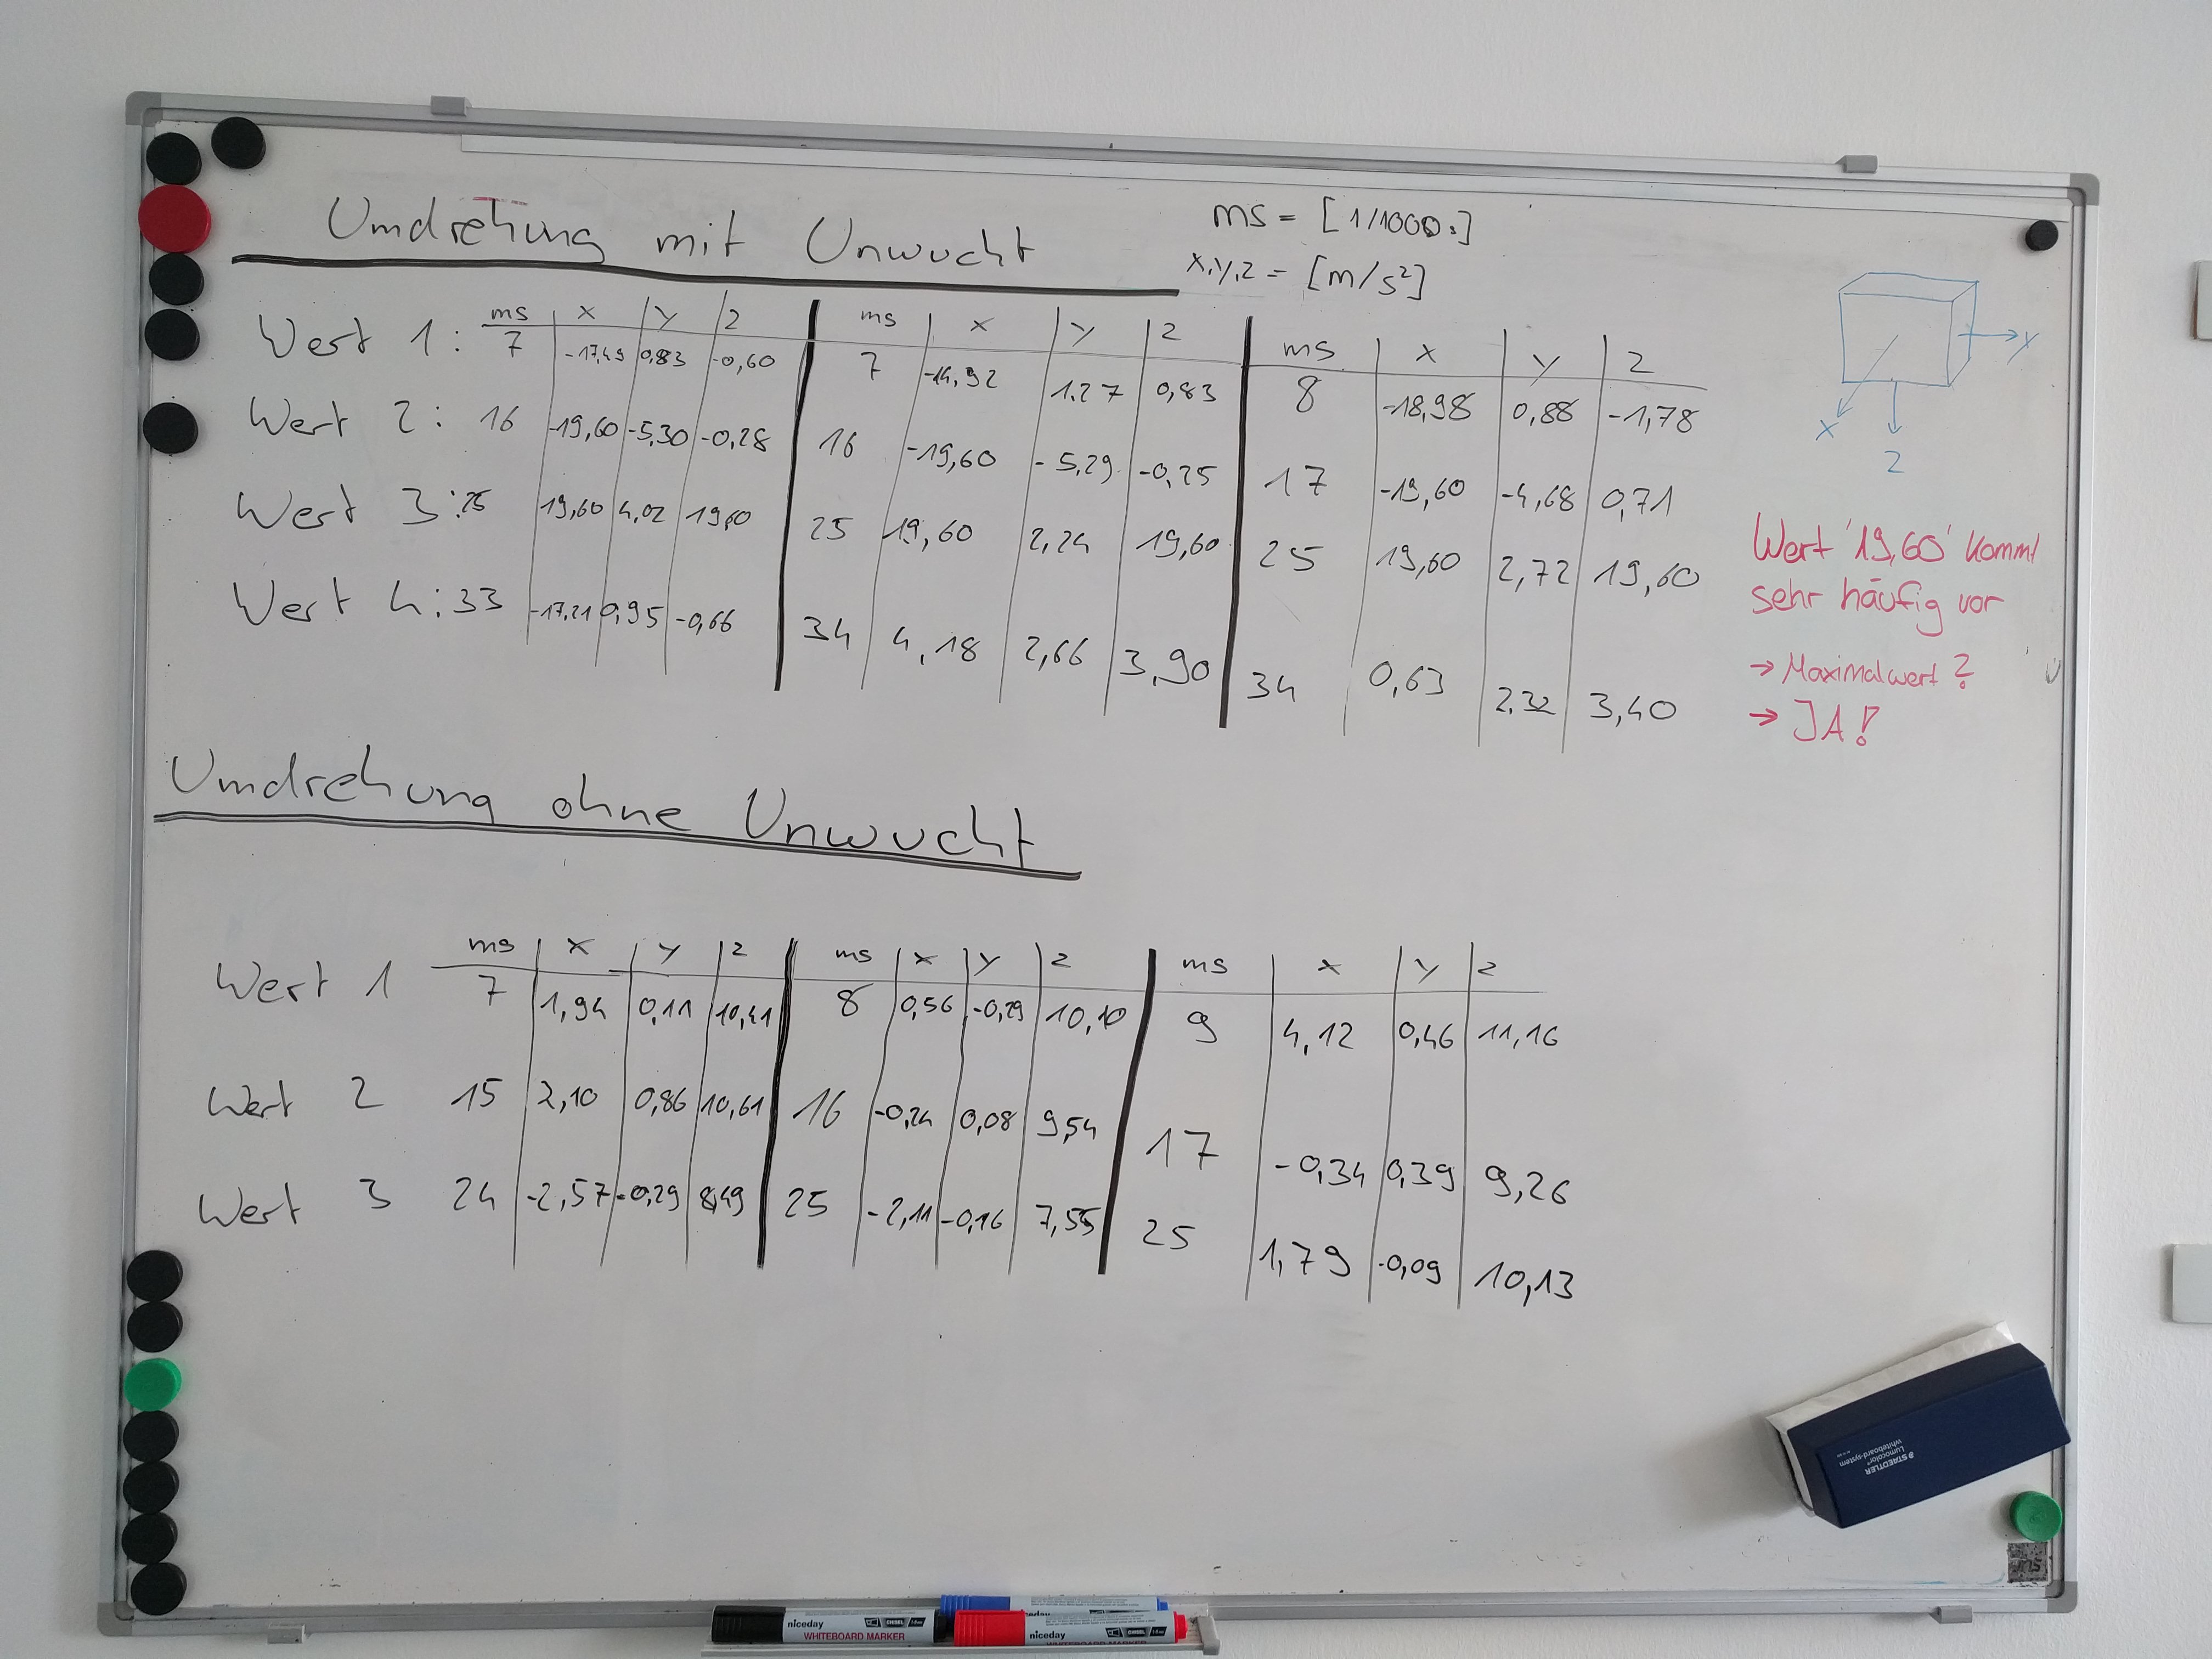 Umdrehung mit Unwucht
ms = [1/1000.]
x,y,z = [m/s²]
ms x y z ms x y z ms x y z
Wert 1: 7 -17,49 0,83 -0,60 7 -14,92 1,27 0,83 8 -18,98 0,88 -1,78
Wert 2: 16 -19,60 -5,30 -0,28 16 -19,60 -5,29 -0,25 17 -19,60 -4,68 0,71
Wert 3: 25 19,60 4,02 19,60 25 19,60 2,24 19,60 25 19,60 2,72 19,60
Wert 4: 33 -17,21 0,95 -0,66 34 4,18 2,66 3,90 34 0,63 2,32 3,40
y
x
z
Wert '19,60' kommt
sehr häufig vor
→ Maximalwert?
→ JA!
Umdrehung ohne Unwucht
ms x y z ms x y z ms x y z
Wert 1 7 1,94 0,11 10,41 8 0,56 -0,29 10,10 9 4,12 0,46 11,16
Wert 2 15 2,10 0,86 10,61 16 -0,24 0,08 9,54 17 -0,34 0,39 9,26
Wert 3 24 -2,57 -0,29 8,49 25 -2,11 -0,16 7,55 25 1,79 -0,09 10,13
STAEDTLER
Lumocolor
whiteboard-system
niceday
WHITEBOARD MARKER
niceday
WHITEBOARD MARKER